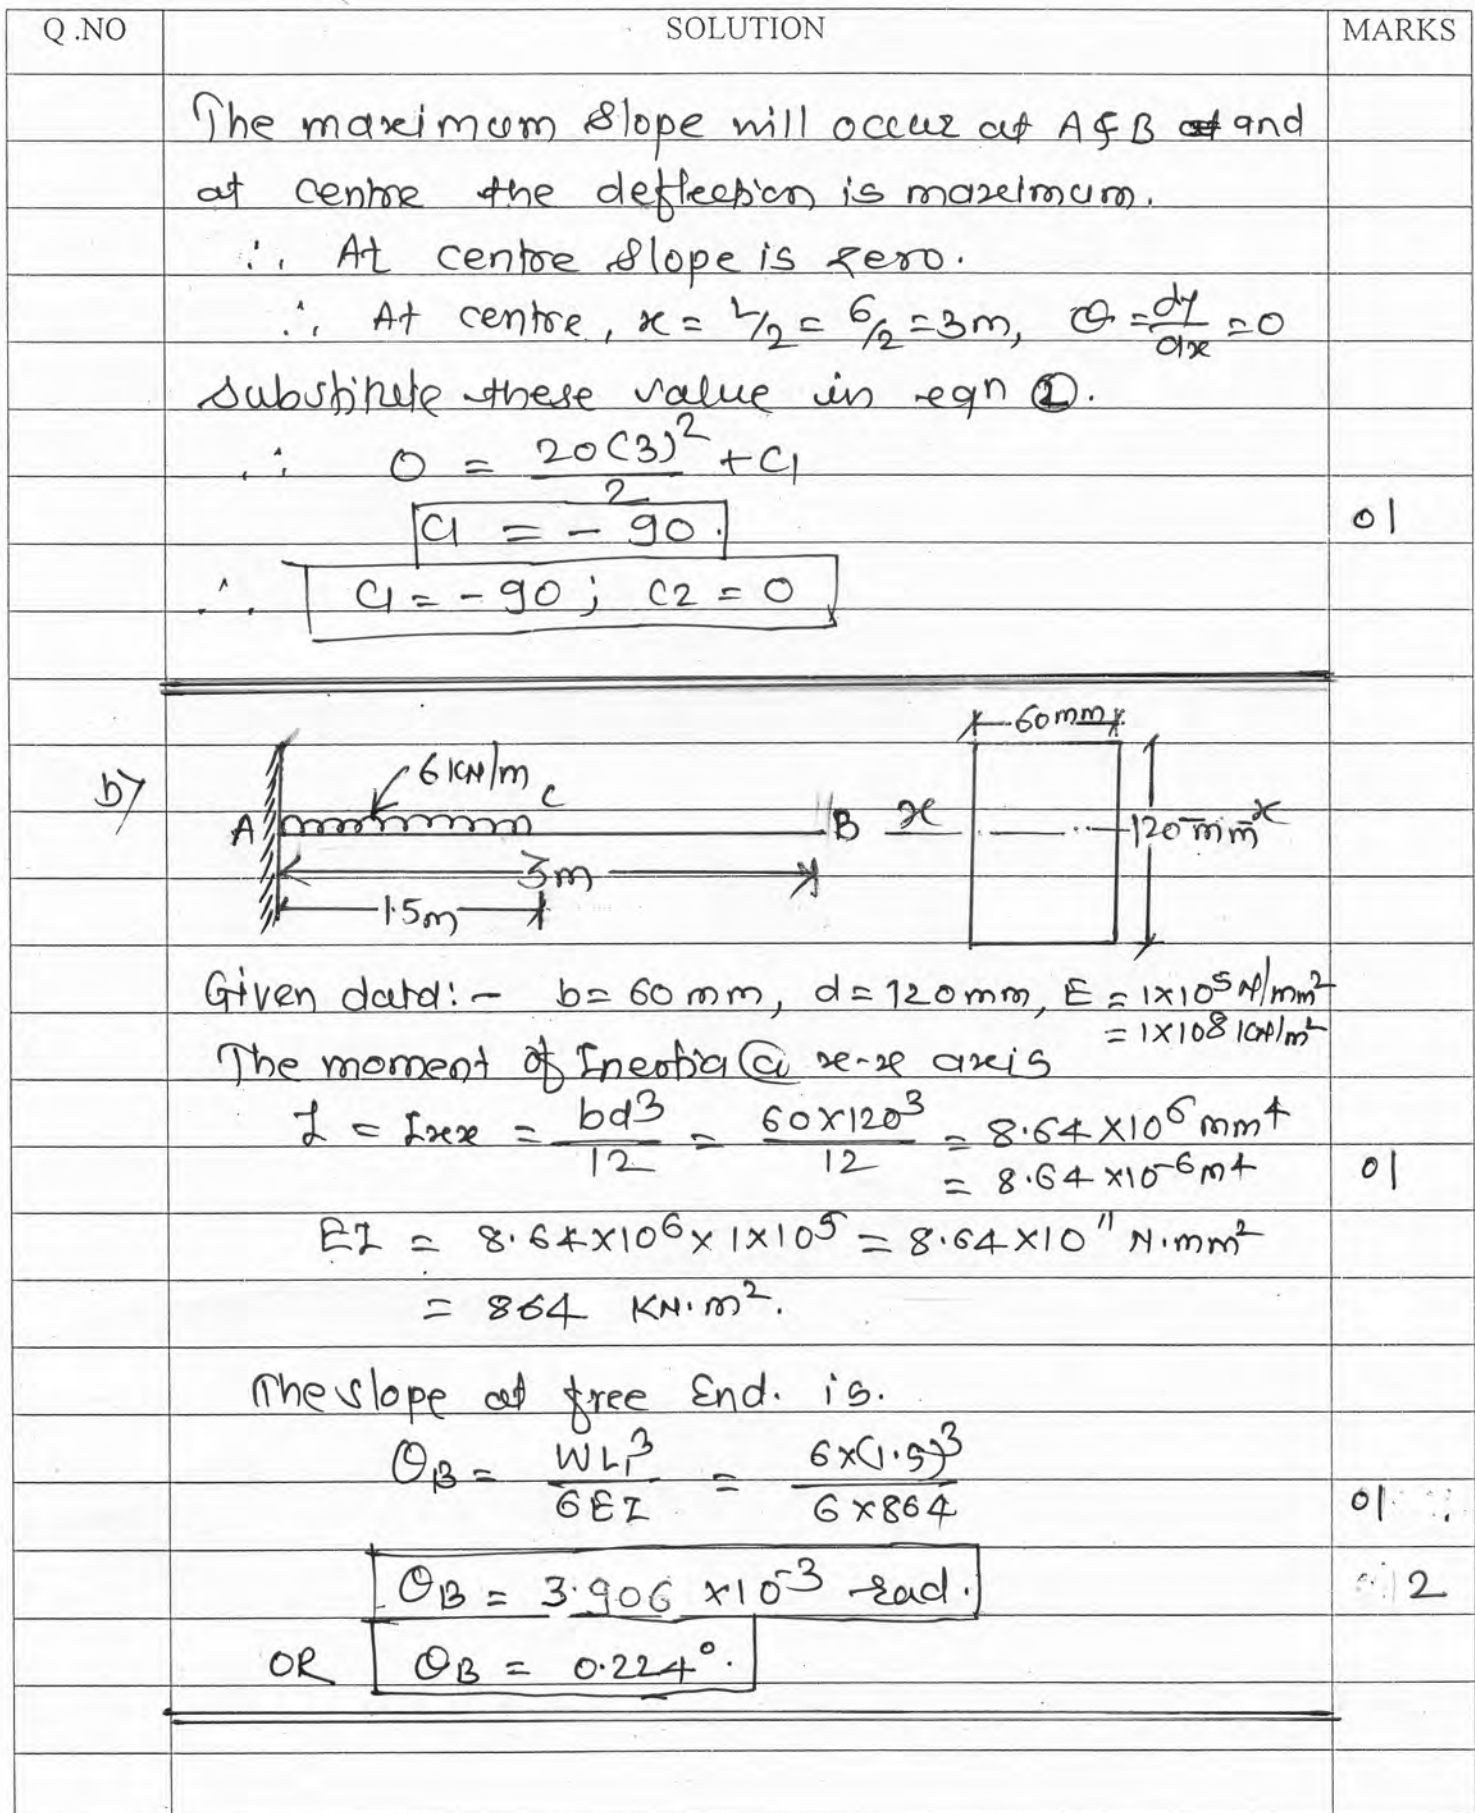 Q.NO SOLUTION MARKS
The maximum slope will occur at A & B and
at centre the deflection is maximum.
∴ At centre slope is zero.
∴ At centre, x = L/2 = 6/2 = 3m, θ = dy/dx = 0
substitute these value in eqn ①.
∴ 0 = 20(3)²/2 + C1
C1 = - 90. 01
∴ C1 = - 90 ; C2 = 0
60mm
b) 6 KN/m C
A B x 120 mm x
3m
1.5m
Given data:- b = 60 mm, d = 120 mm, E = 1x10⁵ N/mm²
= 1x10⁸ KN/m²
The moment of Inertia @ x-x axis
I = Ixx = bd³/12 = 60x120³/12 = 8.64 x10⁶ mm⁴
= 8.64 x10⁻⁶ m⁴ 01
EI = 8.64x10⁶ x 1x10⁵ = 8.64x10¹¹ N.mm²
= 864 KN.m².
The slope at free End. is.
θB = WL₁³/6EI = 6x(1.5)³/6x864 01
θB = 3.906 x10⁻³ rad. 2
OR θB = 0.224°.